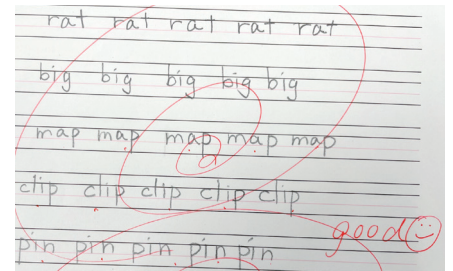 rat rat rat rat rat
big big big big big
map map map map map
clip clip clip clip clip
pin pin pin pin pin
good